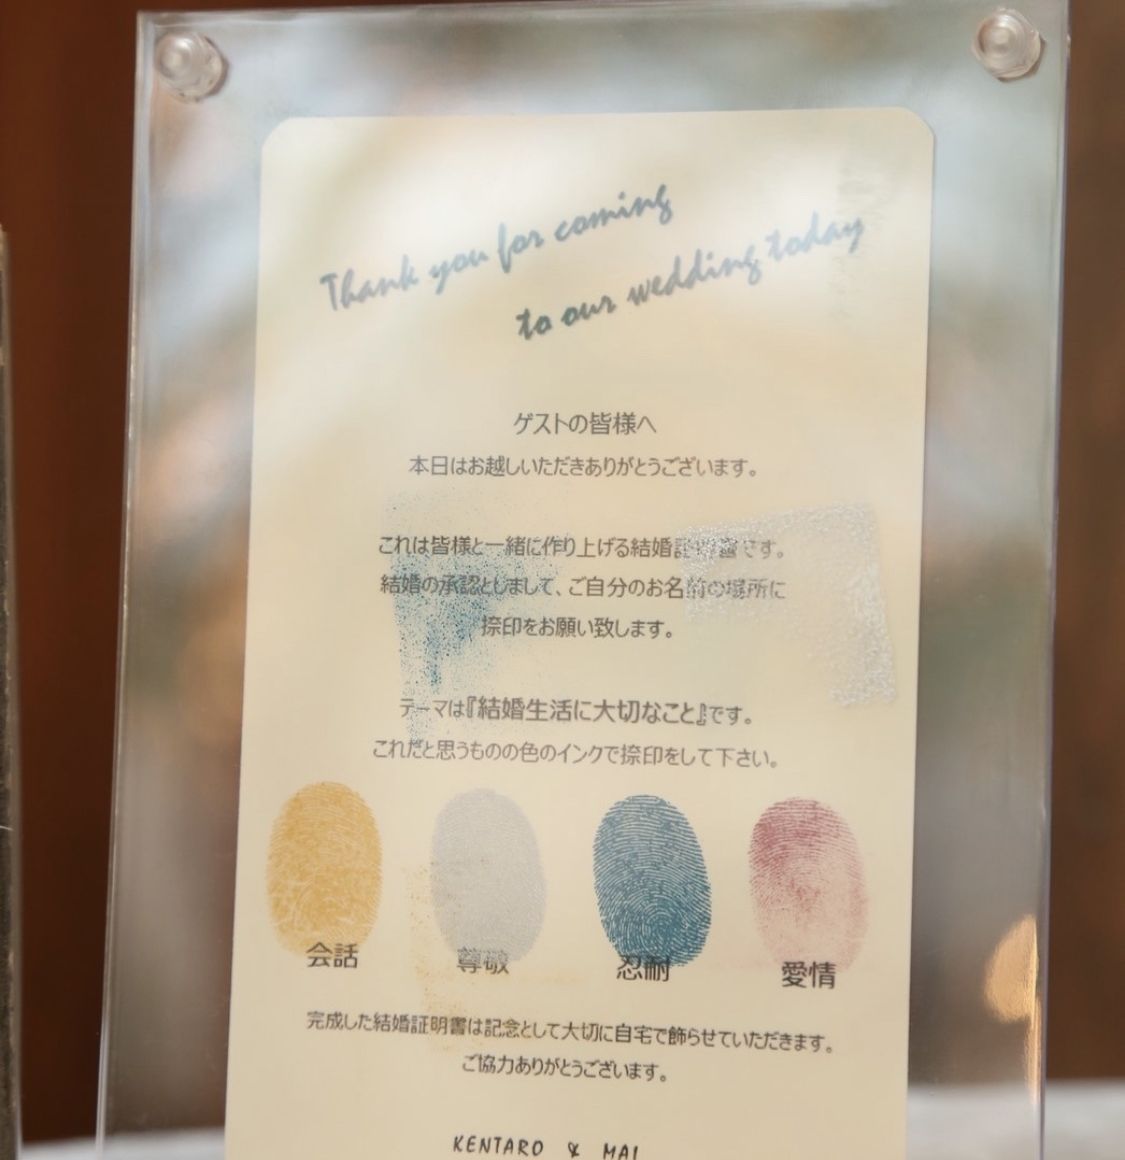 Thank you for coming
to our wedding today
ゲストの皆様へ
本日はお越しいただきありがとうございます。
これは皆様と一緒に作り上げる結婚証明書です。
結婚の承認としまして、ご自分のお名前の場所に
捺印をお願い致します。
テーマは『結婚生活に大切なこと』です。
これだと思うものの色のインクで捺印をして下さい。
会話 尊敬 忍耐 愛情
完成した結婚証明書は記念として大切に自宅で飾らせていただきます。
ご協力ありがとうございます。
KENTARO & MAI